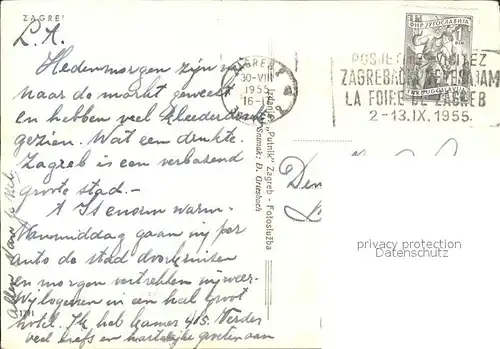 ZAGREB
L.A.
Hedenmorgen zijn wij
naar de markt geweest
en hebben veel kleederdrachten
gezien. Wat een drukte.
Zagreb is een verbazend
groote stad. —
't Is enorm warm.
Vanmiddag gaan wij per
auto de stad doorkruisen
en morgen vertrekken wij weer.
Wij logeeren in een heel groot
hotel. Ik heb kamer 415. Verder
veel liefs en hartelijke groeten aan
allen van je
1791
Izdanje „Putnik" Zagreb - Fotoslužba
Snimak: Đ. Griesbach
ZAGREB
30-VIII
1955
16-
POSJETITE VISITEZ
ZAGREBAČKI VELESAJAM
LA FOIRE DE ZAGREB
2-13.IX.1955.
ФНР ЈУГОСЛАВИЈА
FNR JUGOSLAVIJA
Den
privacy protection
Datenschutz